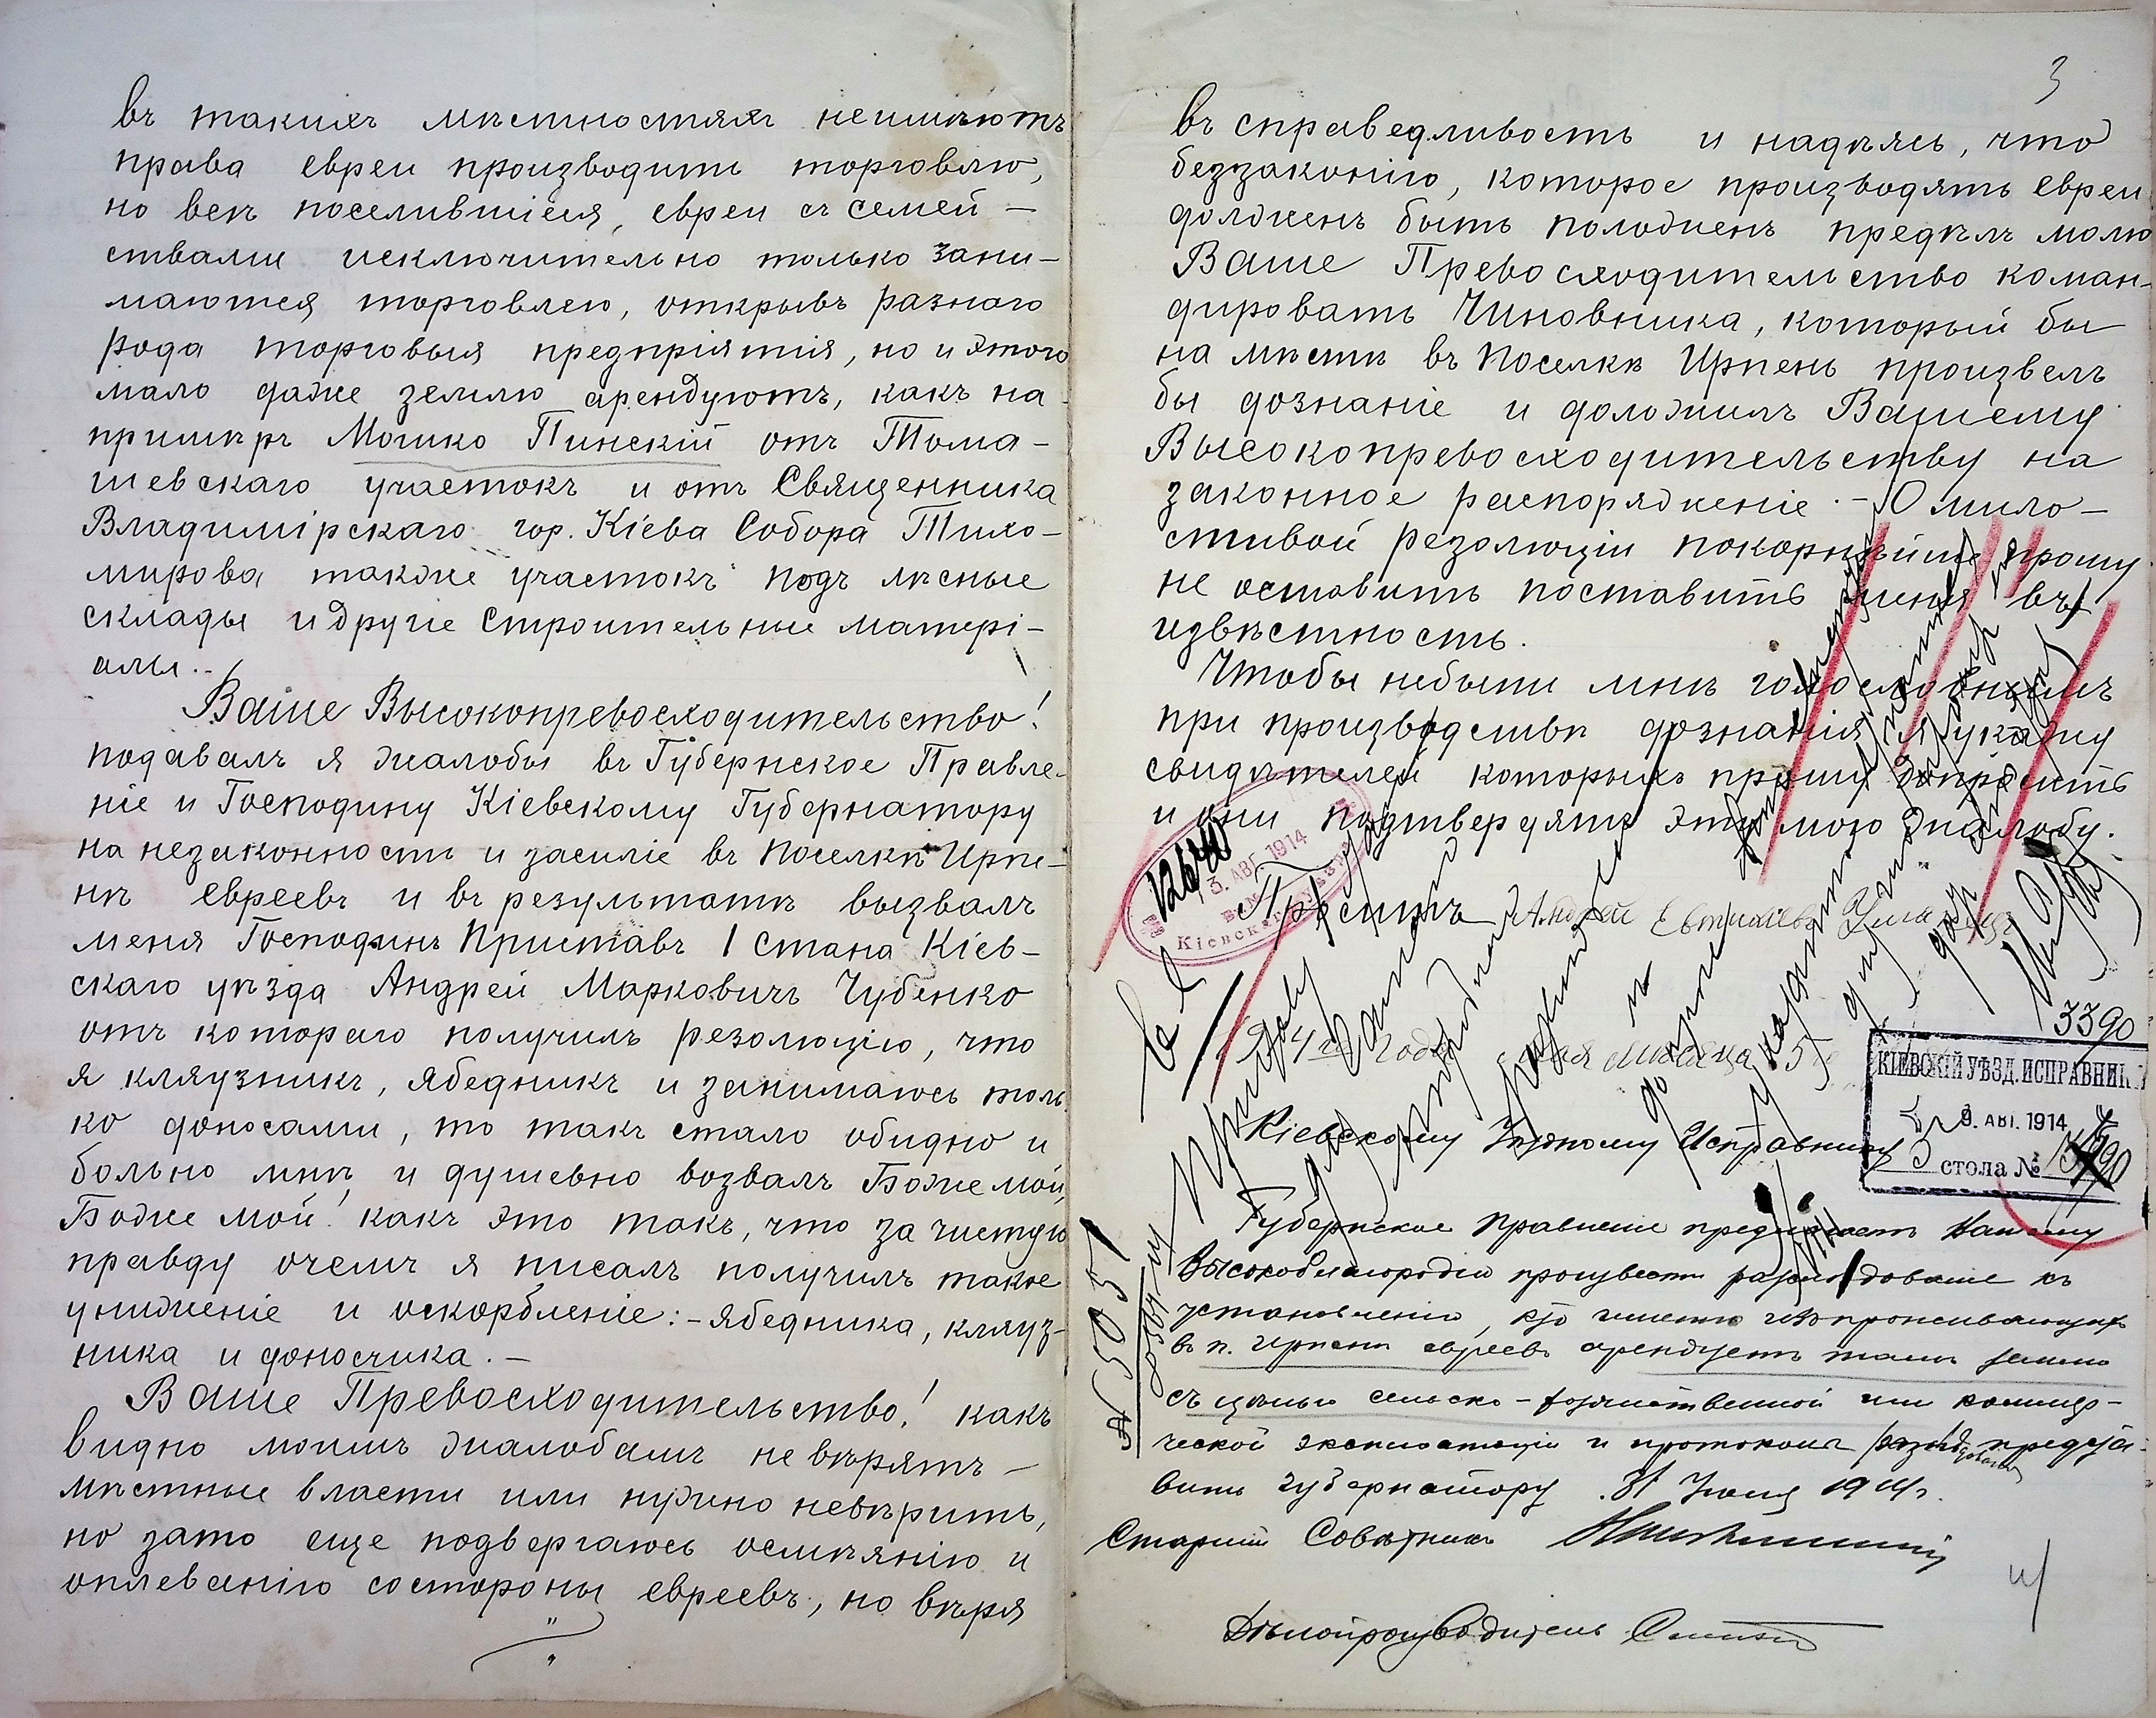 въ такихъ мѣстностяхъ неимѣютъ
права евреи производить торговлю,
но всѣ поселившіеся, евреи съ семей-
ствами исключительно только зани-
маются торговлею, открывъ разнаго
рода торговыя предпріятія, но и этого
мало даже землю арендуютъ, какъ на-
примѣръ Мошко Пинскій отъ Тома-
шевскаго участокъ и отъ Священника
Владимірскаго гор. Кіева Собора Тихо-
мирова также участокъ подъ лѣсные
склады и другіе Строительные матері-
алы.-
Ваше Высокопревосходительство!
подавалъ я жалобы въ Губернское Правле-
ніе и Господину Кіевскому Губернатору
на незаконности и засиліе въ поселкѣ Ирпе-
нѣ евреевъ и въ результатѣ вызвалъ
меня Господинъ Приставъ 1 Стана Кіев-
скаго уѣзда Андрей Марковичъ Чубенко
отъ котораго получилъ резолюцію, что
я кляузникъ, ябедникъ и занимаюсь толь-
ко доносами, то такъ стало обидно и
больно мнѣ, и душевно возвалъ Боже мой,
Боже мой! какъ это такъ, что за чистую
правду очемъ я писалъ получилъ такое
униженіе и оскорбленіе:-ябедника, кляуз-
ника и доносчика.-
Ваше Превосходительство! какъ
видно моимъ жалобамъ не вѣрятъ-
мѣстные власти или нужно невѣрить,
но зато еще подвергаюсь осмѣянію и
оплеванію состороны евреевъ, но вѣря
3
въ справедливость и надѣясь, что
беззаконію, которое производятъ евреи
долженъ быть положенъ предѣлъ молю
Ваше Превосходительство коман-
дировать Чиновника, который бы
на мѣстѣ въ Поселкѣ Ирпень произвелъ
бы дознаніе и доложилъ Вашему
Высокопревосходительству на
законное распоряженіе.- О мило-
стивой резолюціи покорнѣйше прошу
не оставить поставить меня въ
извѣстность.
Чтобы небыти мнѣ голословнымъ
при производствѣ дознанія я укажу
свидѣтелей которыхъ прошу допросить
и они подтвердятъ эту мою жалобу.
12640
3. АВГ. 1914
Кіевск
Проситъ Андрей
1914 года мая мѣсяца 5
3390
КІЕВСКІЙ УѢЗД. ИСПРАВНИК
9. АВГ. 1914
3 стола №
Кіевскому Уѣздному Исправнику
Губернское Правленіе предлагаетъ Вашему
Высокоблагородію произвести разслѣдованіе къ
установленію, кто именно изъ проживающихъ
въ п. Ирпени евреевъ арендуетъ тамъ землю
съ цѣлью сельско-хозяйственной или коммер-
ческой эксплоатаціи и протоколъ разслѣдованія предста-
вить Губернатору. 31 Іюля 1914 г.
Старшій Совѣтникъ
Дѣлопроизводитель
№ 5057
Приставу